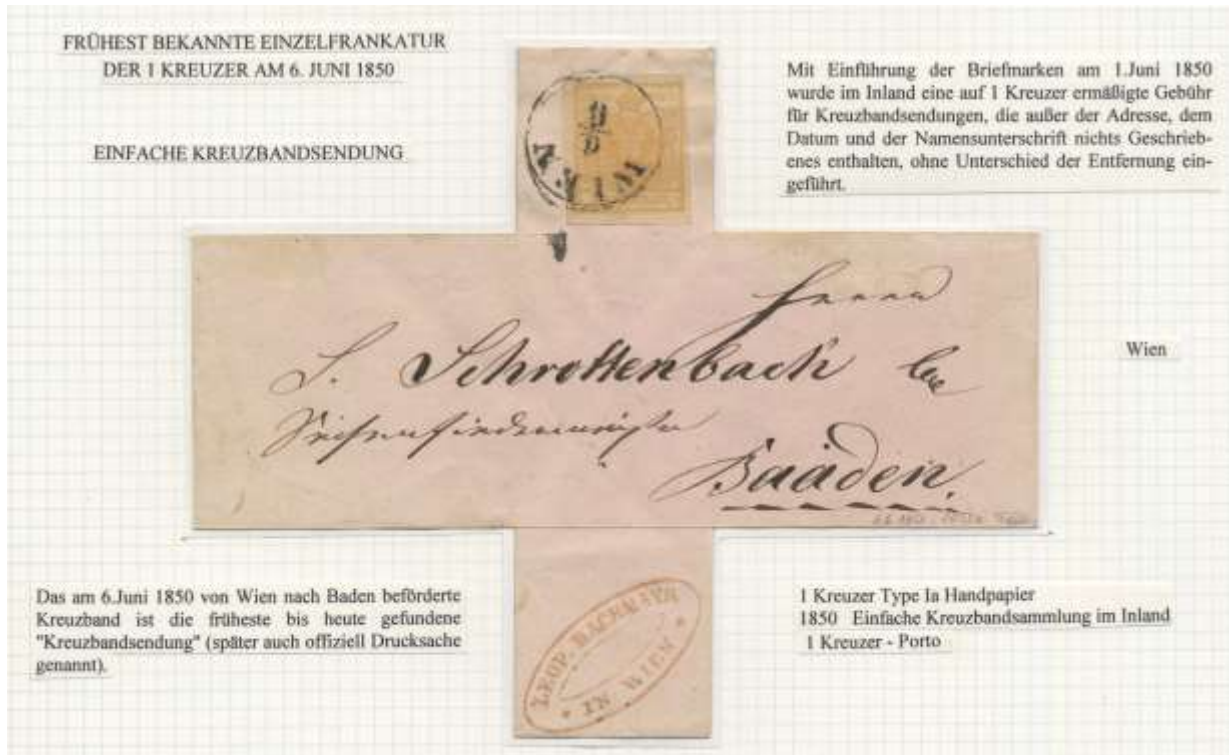 FRÜHEST BEKANNTE EINZELFRANKATUR
DER 1 KREUZER AM 6. JUNI 1850
EINFACHE KREUZBANDSENDUNG
WIEN
6/6
Mit Einführung der Briefmarken am 1.Juni 1850
wurde im Inland eine auf 1 Kreuzer ermäßigte Gebühr
für Kreuzbandsendungen, die außer der Adresse, dem
Datum und der Namensunterschrift nichts Geschrieb-
enes enthalten, ohne Unterschied der Entfernung ein-
geführt.
Herrn
S. Schrottenbach
Seifensiedermeister
Baaden.
Wien
Das am 6.Juni 1850 von Wien nach Baden beförderte
Kreuzband ist die früheste bis heute gefundene
"Kreuzbandsendung" (später auch offiziell Drucksache
genannt).
LEOP. BACHMAYR
IN WIEN
1 Kreuzer Type Ia Handpapier
1850 Einfache Kreuzbandsammlung im Inland
1 Kreuzer - Porto